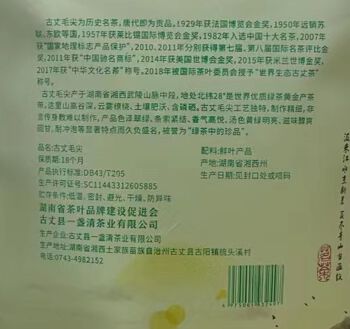 古丈毛尖为历史名茶,唐代即为贡品。1929年获法国博览会金奖,1950年远销苏
联、东欧等国,1957年获莱比锡国际博览会金奖,1982年入选中国十大名茶,2007年
获"国家地理标志产品保护",2010、2011年分别获得第七届、第八届国际名茶评比金
奖,2011年获"中国驰名商标",2014年获美国世界博览会金奖,2015年获米兰世博会金奖,
2017年获"中华文化名茶"称号,2018年被国际茶叶委员会授予"世界生态古丈茶"
称号。
古丈毛尖产于湖南省湘西武陵山脉中段,地处北纬28°是世界优质绿茶黄金产茶
带,这里山高谷深,云雾缭绕、土壤肥沃、含磷硒。古丈毛尖工艺独特,制作精细,
产品色泽翠绿,条索紧结、香气高悦,汤色黄绿明亮,滋味醇爽
回甘,耐冲泡等显著特点而久负盛名,被誉为"绿茶中的珍品"。
品名:古丈毛尖
配料:鲜叶产品
保质期:18个月
产地:湖南省湘西州
产品执行标准:DB43/T205
生产日期:见封口处或喷码
生产许可证:SC11443312605885
贮存条件:低温、密封、避光、干燥、防异味
湖南省茶叶品牌建设促进会
古丈县一盏清茶业有限公司
生产企业:古丈县一盏清茶业有限公司
生产地址:湖南省湘西土家族苗族自治州古丈县古阳镇梳头溪村
电话:0743-4982152